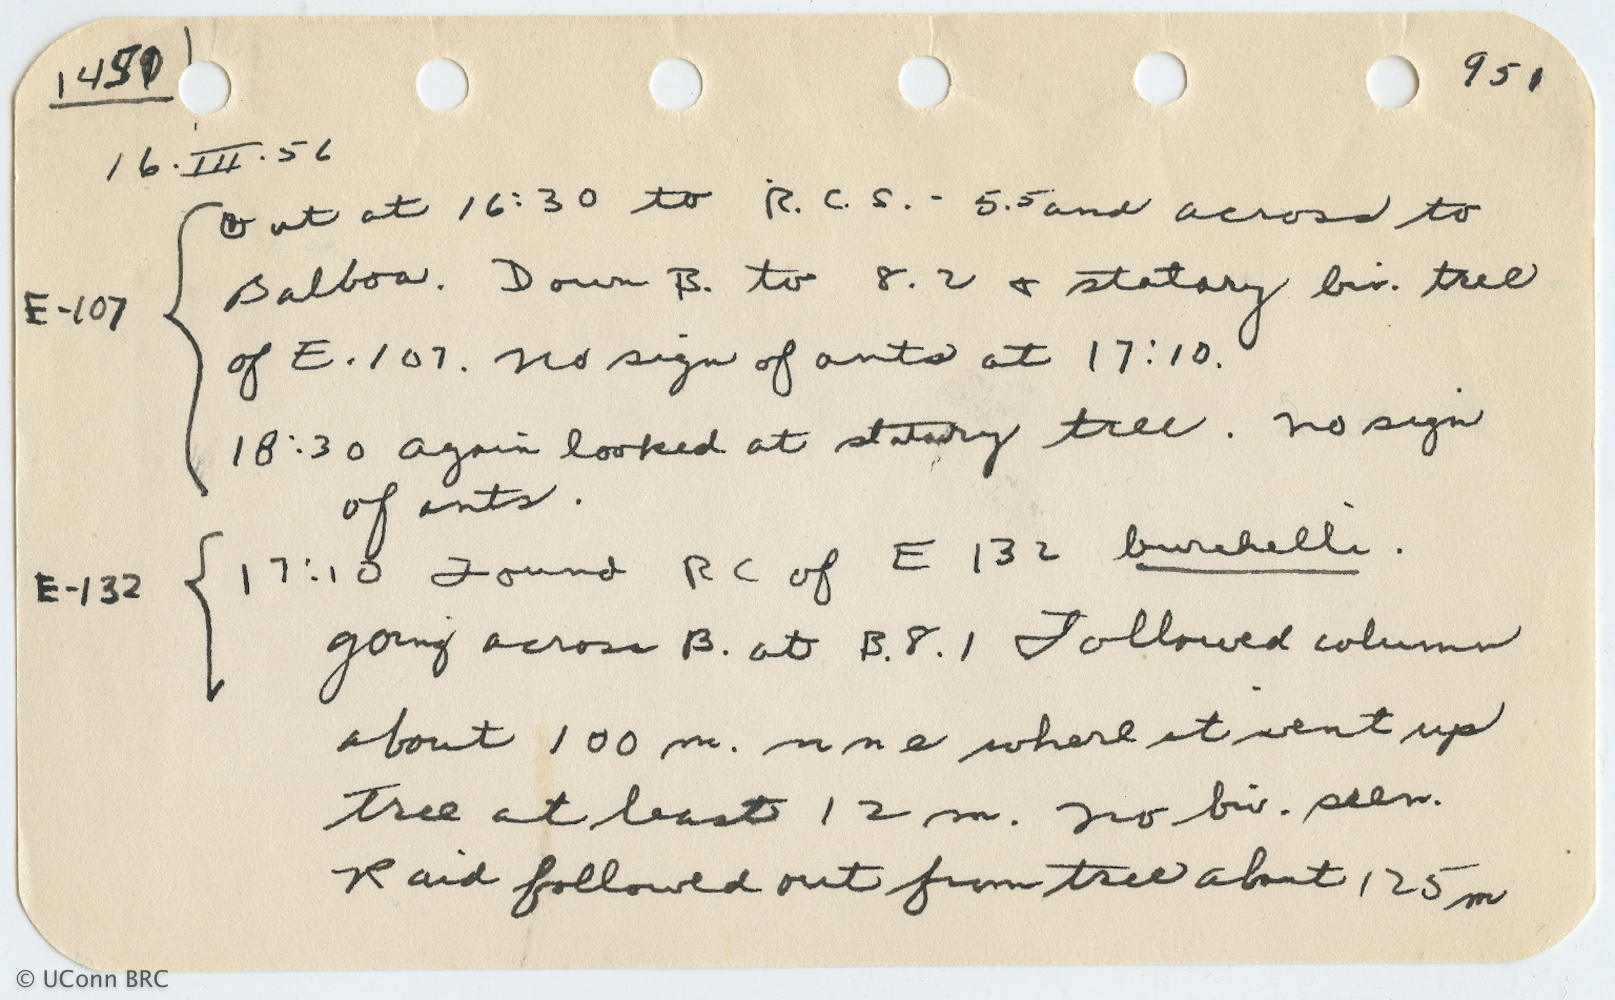 951
16.III.56
Out at 16:30 to R.C.S. - 5.5 and across to
Balboa. Down B. to 8.2 & statary biv. tree
E-107
of E-107. No sign of ants at 17:10.
18:30 again looked at statary tree. No sign
of ants.
E-132
17:10 Found RC of E 132 burchelli.
going across B. at B.8.1 Followed column
about 100 m. nne where it went up
tree at least 12 m. No biv. seen.
Raid followed out from tree about 125 m
© UConn BRC